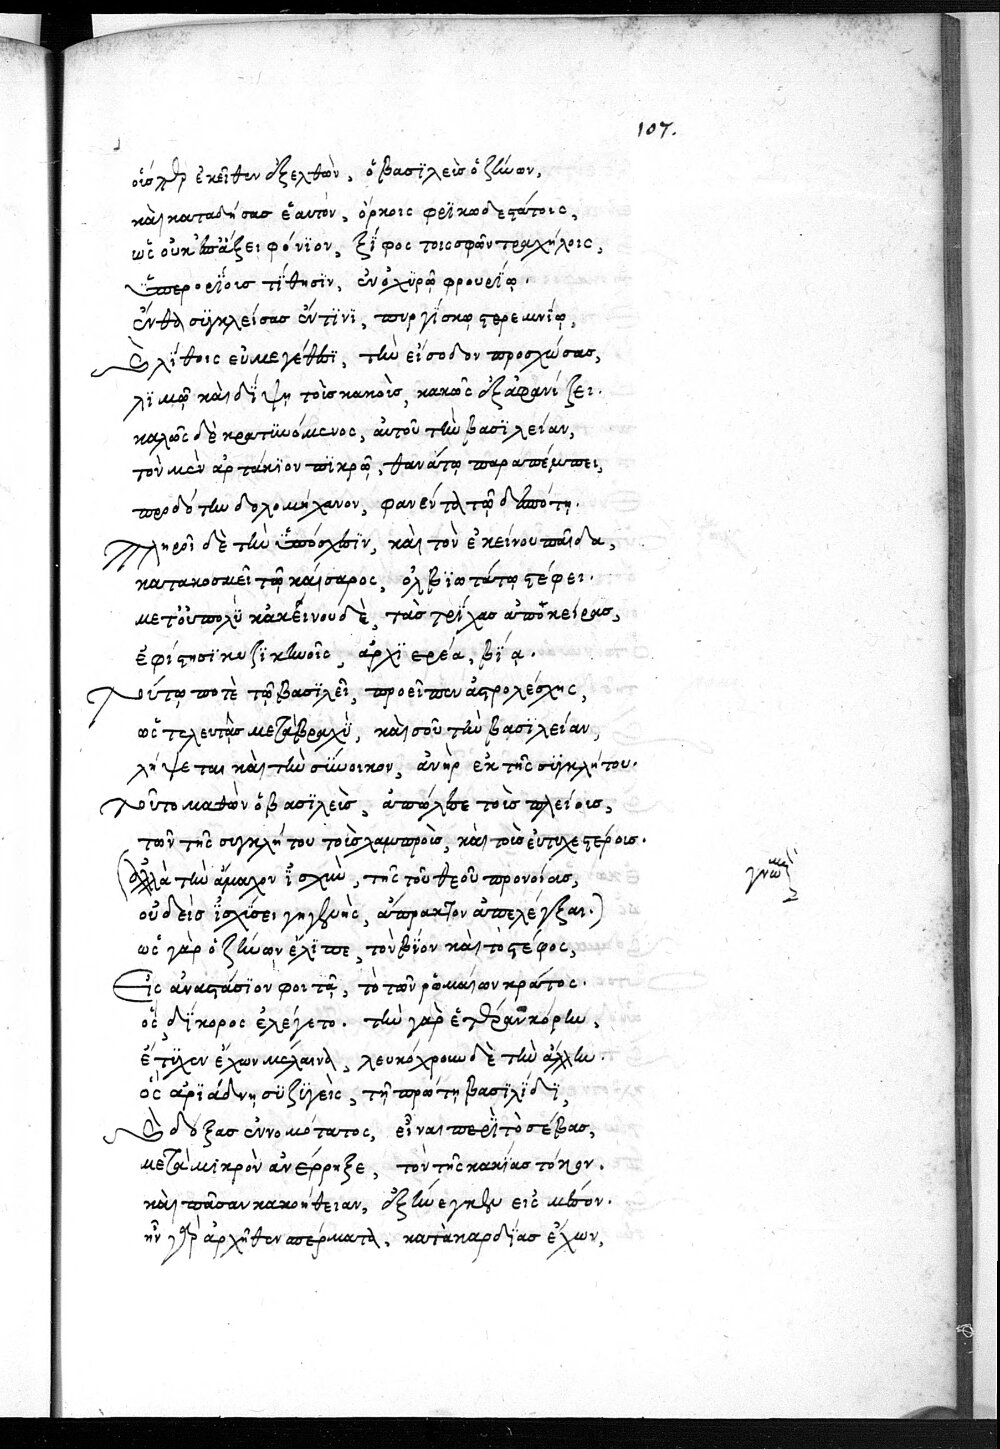 107.
οὕσπερ ἐκεῖθεν ἐξελθὼν, ὁ βασϊλεὺς ὁ ζήνων,
καὶ καταδήσας ἑαυτὸν, ὅρκοις φρϊκωδεστάτοις,
ὡς οὐκ ἐπάξει φόνϊον, ξίφος τοῖς σφῶν τραχήλοις,
ὑπερορίοις τίθησϊν, ἐν ὀχϋρῷ φρουρίῳ.
ἔνθα συγκλείσας ἔν τϊνϊ, πυργίσκῳ στερεμνίῳ,
καὶ λίθοις εὐμεγέθεσϊ, τὴν εἴσοδον προσχώσας,
λϊμῷ καὶ δίψῃ τοῖς κακοῖς, κακῶς ἐξαφανίζει.
καλῶς δὲ κρατϋνόμενος, αὐτοῦ τὴν βασϊλείαν,
τὸν μὲν ἁρμάτϊον πϊκρῷ, θανάτῳ παραπέμπει,
προδότην δολομήχανον, φανέντα τῷ δεσπότῃ.
Πληροῖ δὲ τὴν ὑπόσχεσϊν, καὶ τὸν ἐκείνου παῖδα,
κατακοσμεῖ τῷ καίσαρος, ὀλβϊωτάτῳ στέφει.
μετ' οὐ πολὺ κἀκείνου δὲ, τὰς τρίχας ἀποκείρας,
ἐφίστησϊ κυζϊκηνοῖς, ἀρχϊερέα, βίᾳ.
Τούτῳ ποτὲ τῷ βασϊλεῖ, προεῖπεν ἀστρολέσχης,
ὡς τελευτᾷς μετὰ βραχὺ, καὶ σοῦ τὴν βασϊλείαν,
λήψεται καὶ τὴν σύνοικον, ἀνὴρ ἐκ τῆς συγκλήτου.
Τοῦτο μαθὼν ὁ βασϊλεὺς, ἀπώλεσε τοὺς πλείους,
τῶν τῆς συγκλήτου τοὺς λαμπροὺς, καὶ τοὺς εὐτυχεστέρους.
(ἀλλὰ τὴν ἄμαχον ἰσχὺν, τῆς τοῦ θεοῦ προνοίας,
οὐδεὶς ἰσχύσει γηγενὴς, ἄπρακτον ἀπελέγξαι.)
γνώμη
ὡς γὰρ ὁ ζήνων ἔλϊπε, τὸν βίον καὶ τὸ στέφος,
Εἰς ἀναστάσϊον φοιτᾷ, τὸ τῶν ῥωμαίων κράτος.
ὃς δίκορος ἐλέγετο. τὴν γὰρ ἑτέραν κόρην,
ἔτϋχεν ἔχων μέλαιναν, λευκόχρουν δὲ τὴν ἄλλην.
ὃς ἀρϊάδνῃ συζϋγεὶς, τῇ πρώτῃ βασϊλίδϊ,
καὶ δόξας ἐννομώτατος, εἶναι περὶ τὸ σέβας,
μετὰ μικρὸν ἀνέρρηξε, τὸν τῆς κακίας τόκον.
καὶ πᾶσαν κακοήθειαν, ἐξήνεγκεν εἰς μέσον.
ἣν γὰρ ἀρχῆθεν σπέρματα, κατὰ καρδίας ἔχων,